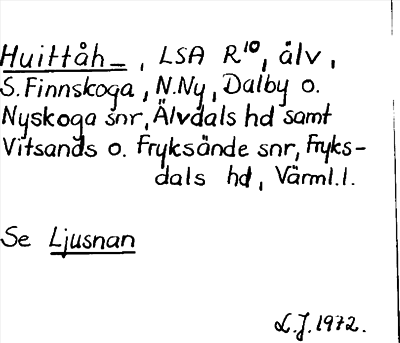 Huittåh–, LSA R¹⁰, älv,
S. Finnskoga, N. Ny, Dalby o.
Nyskoga snr, Älvdals hd samt
Vitsands o. Fryksände snr, Fryks-
dals hd, Värml. l.
Se Ljusnan
L.J. 1972.